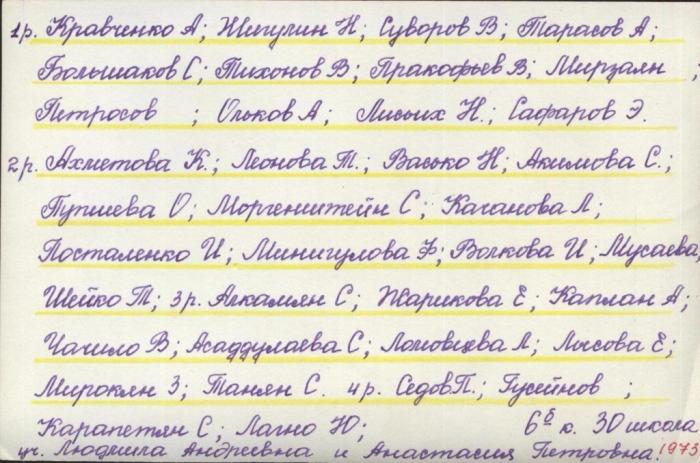 1р. Кравченко А; Шигулин Н; Суворов В; Тарасов А;
Большаков С; Тихонов В; Пракофьев В; Мирзаян ;
Петросов ; Ольков А; Лисьих Н.; Сафаров Э.
2р. Ахметова К.; Леонова Т.; Васько Н; Акимова С.;
Тупиева О; Моргенштейн С; Каганова Л;
Посталенко И; Минигулова Ф; Волкова И; Мусаева;
Шейко Т; 3р. Алкамян С; Жарикова Е; Каплан А;
Чачило В; Асаддулаева С; Ломовцева Л; Лысова Е;
Мироян З; Танян С. 4р. Седов П.; Гусейнов ;
Карапетян С; Лагно Ю; 6б ю. 30 школа
уч. Людмила Андреевна и Анастасия Петровна. 1973